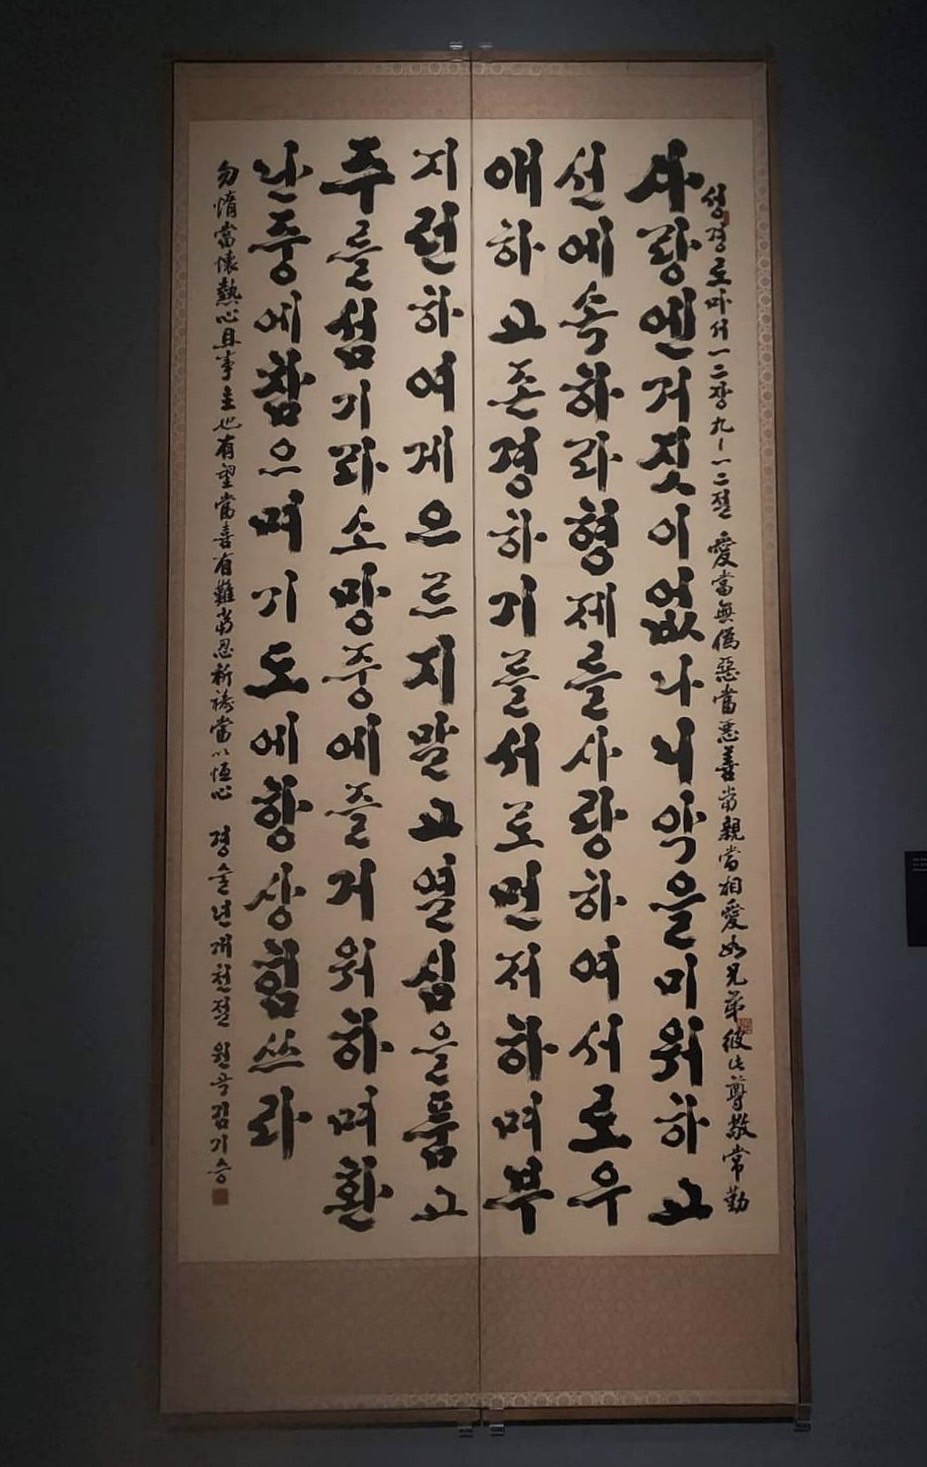 성경로마서一二장九ㅣ一二절 愛當無僞惡當惡善當親當相愛如兄弟彼此尊敬常勤
사랑엔거짓이없나니악을미워하고
선에속하라형제를사랑하여서로우
애하고존경하기를서로먼저하며부
지런하여게으르지말고열심을품고
주를섬기라소망중에즐거워하며환
난중에참으며기도에항상힘쓰라
勿惰當懷熱心且事主也有望當喜有難當忍祈禱當以恒心 경술년개천절 원곡김기승